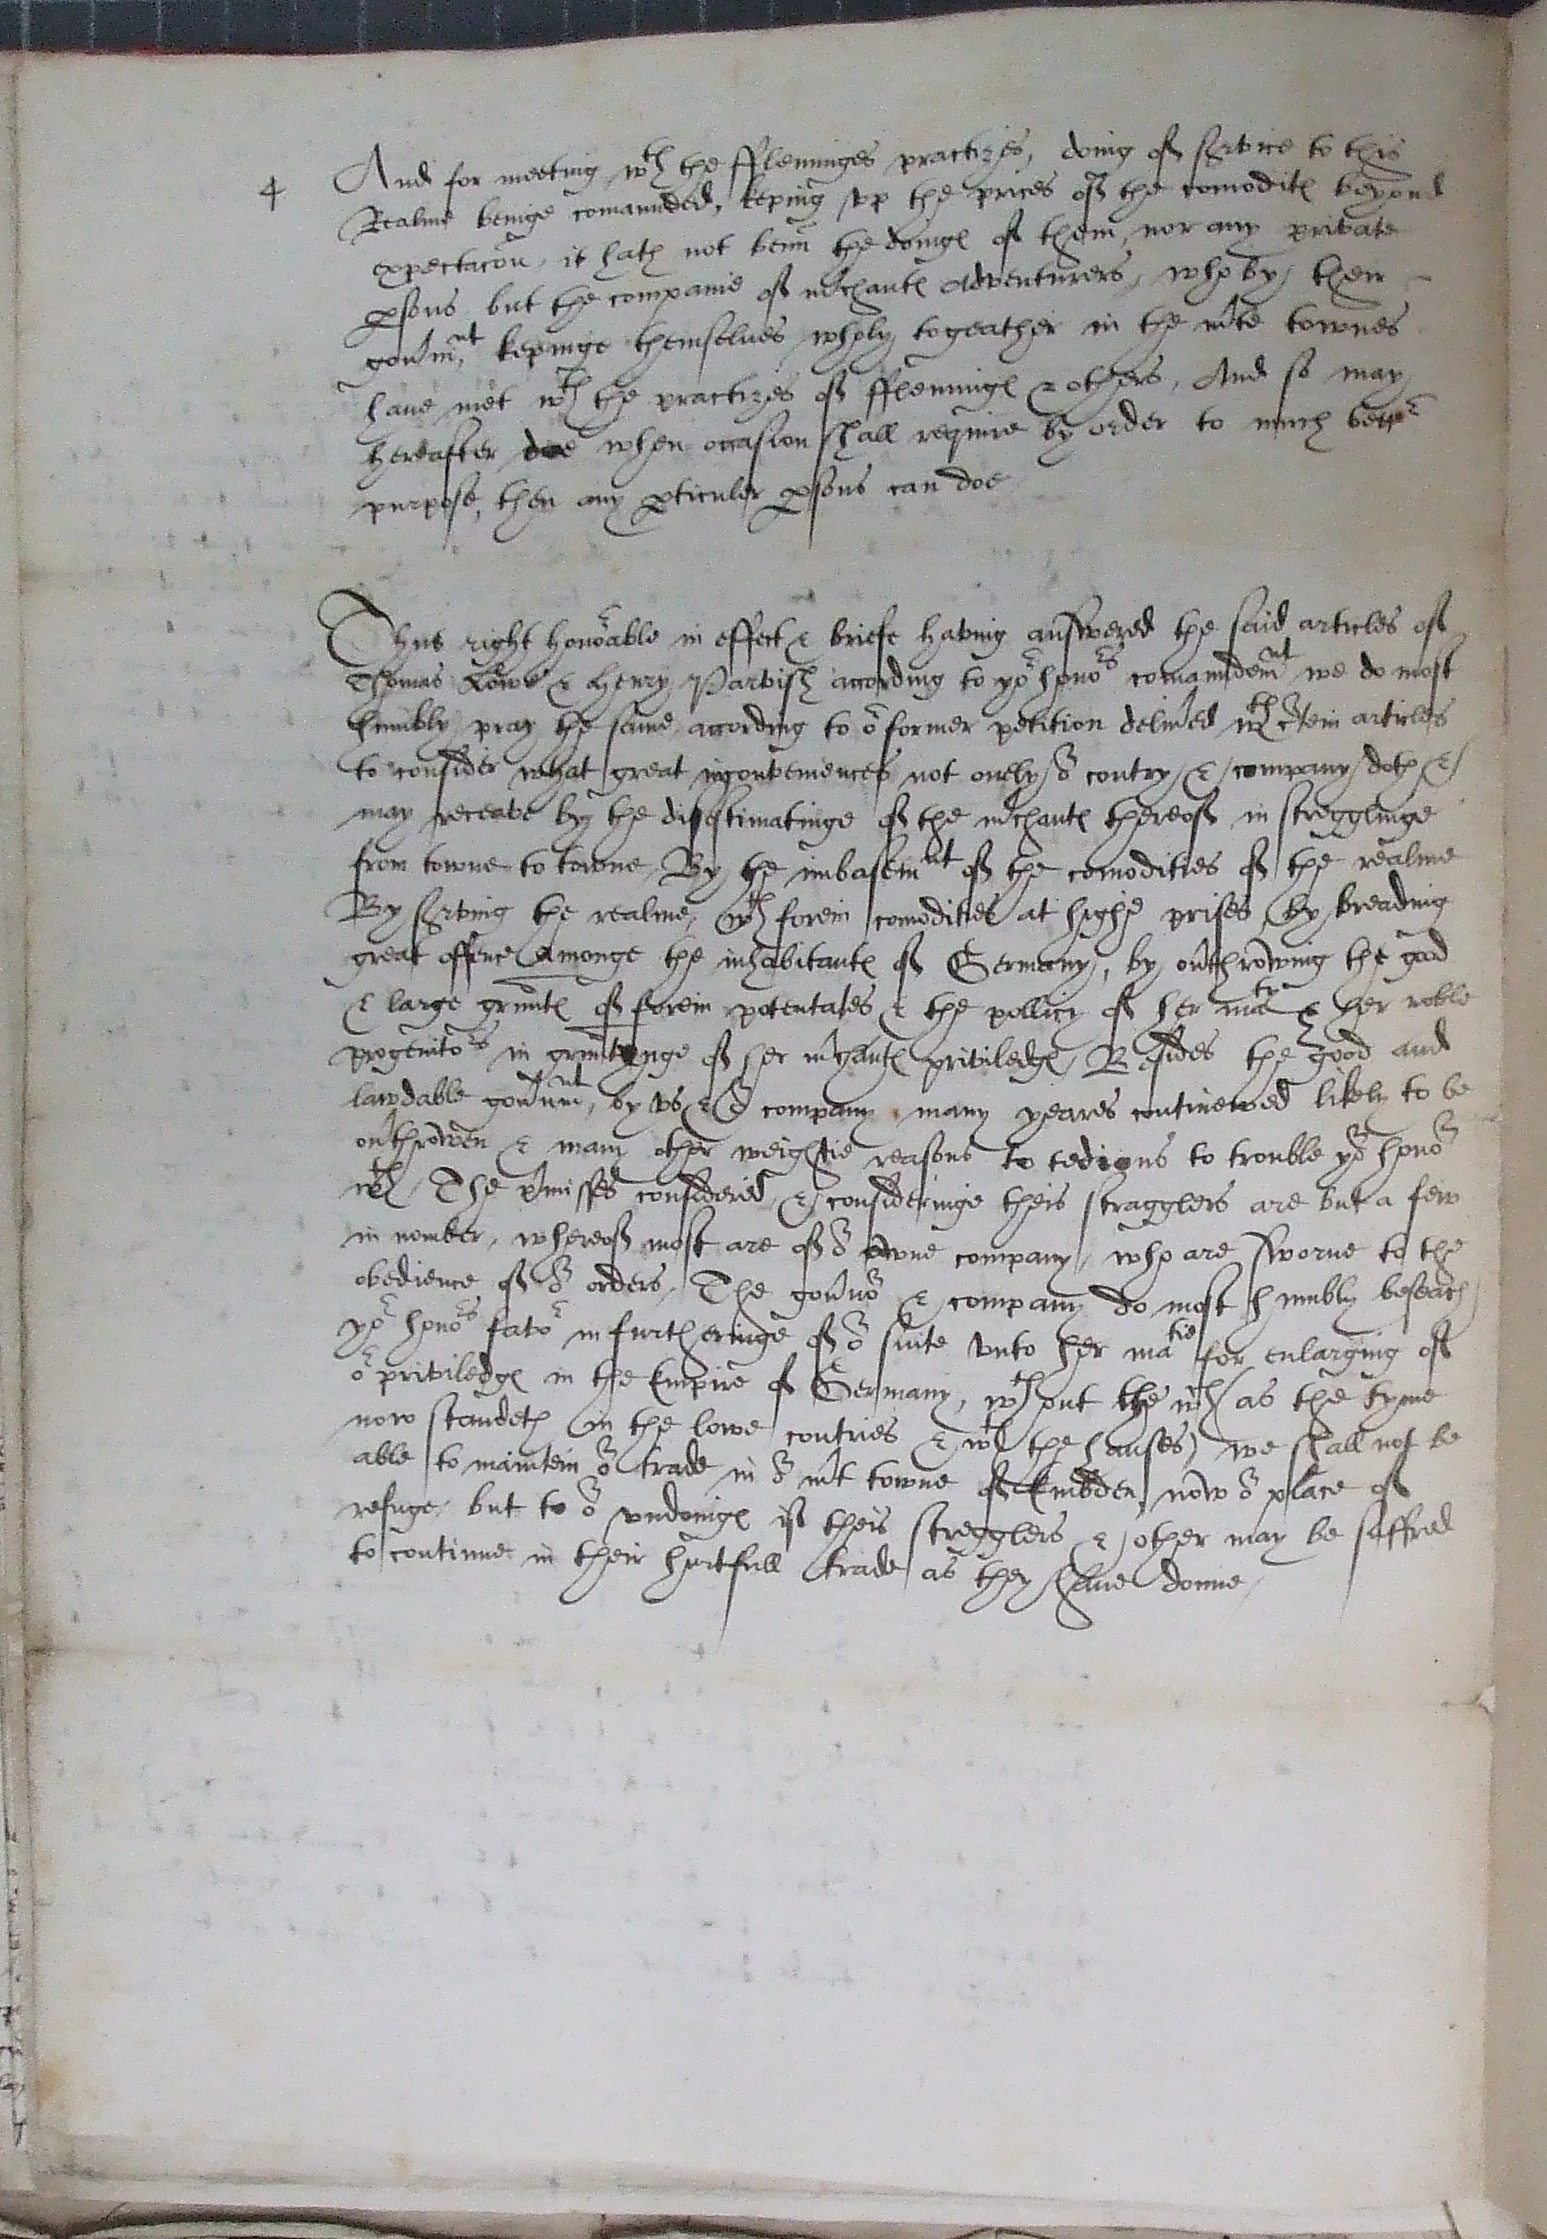 4 And for meeting wth the fflemmges practizes, doing of service to this
Realme beinge comaunded, keping vp the prices of the comodit℮ beyond
expectacōn, it hath not benn the doing℮ of them, nor any private
ꝑsons but the companie of m̃chant℮ Adventurers, who by their
gou̾mnt, kepinge themselues wholy togeather in the m̃te townes
haue met wth the practizes of fflemming℮ & others, And so may
hereafter doe when occasion shall require by order to much bettr
purpose, then any ꝑticuler ꝑsons can doe
Thus right hono͠able in effect & briefe having answered the said articles of
Thomas Lowe & Henry Parvish according to yor honors comaundemnt we do most
humbly pray the same according to or former petition deliu̾ed wth c̾tein articles
to consider what great inconveniences not onely or contry & company doth &
may receave by the disestimatinge of the m̃chant℮ thereof in stregglinge
from towne to towne, By the imbasemnt of the comodities of the realme
By serving the realme, wth forein comodities at highe prises, by breading
great offence amonge the inhabitant℮ of Germany, by ou̾throwing the good
& large grannt℮ of forein potentates & the pollicy of her maty & her noble
progenitors in grauntynge of her m̃chant℮ priviledg℮, Besides the good and
lawdable gou̾nmt, by vs & or company many yeares continewed likely to be
ou̾throwen & many other weightie reasons to tedious to trouble yor honor
wth, The p̾misses considered, & consideringe theis stragglers are but a few
in nomber, whereof most are of or owne company, who are sworne to the
obedience of or orders, The gou̾nor & company do most humbly beseach
yor honors favor in furtheringe of or suite vnto her matie for enlarging of
or priviledg℮ in the Empire of Germany, wthout the wch (as the tyme
now standeth in the lowe contries & wth the hanses) we shall not be
able to maintein or trade in or m̃t towne of Embden now or place of
refuge, but to or vndoing℮ if theis stregglers & other may be suffred
to continue in their hurtfull trade as they haue donne,